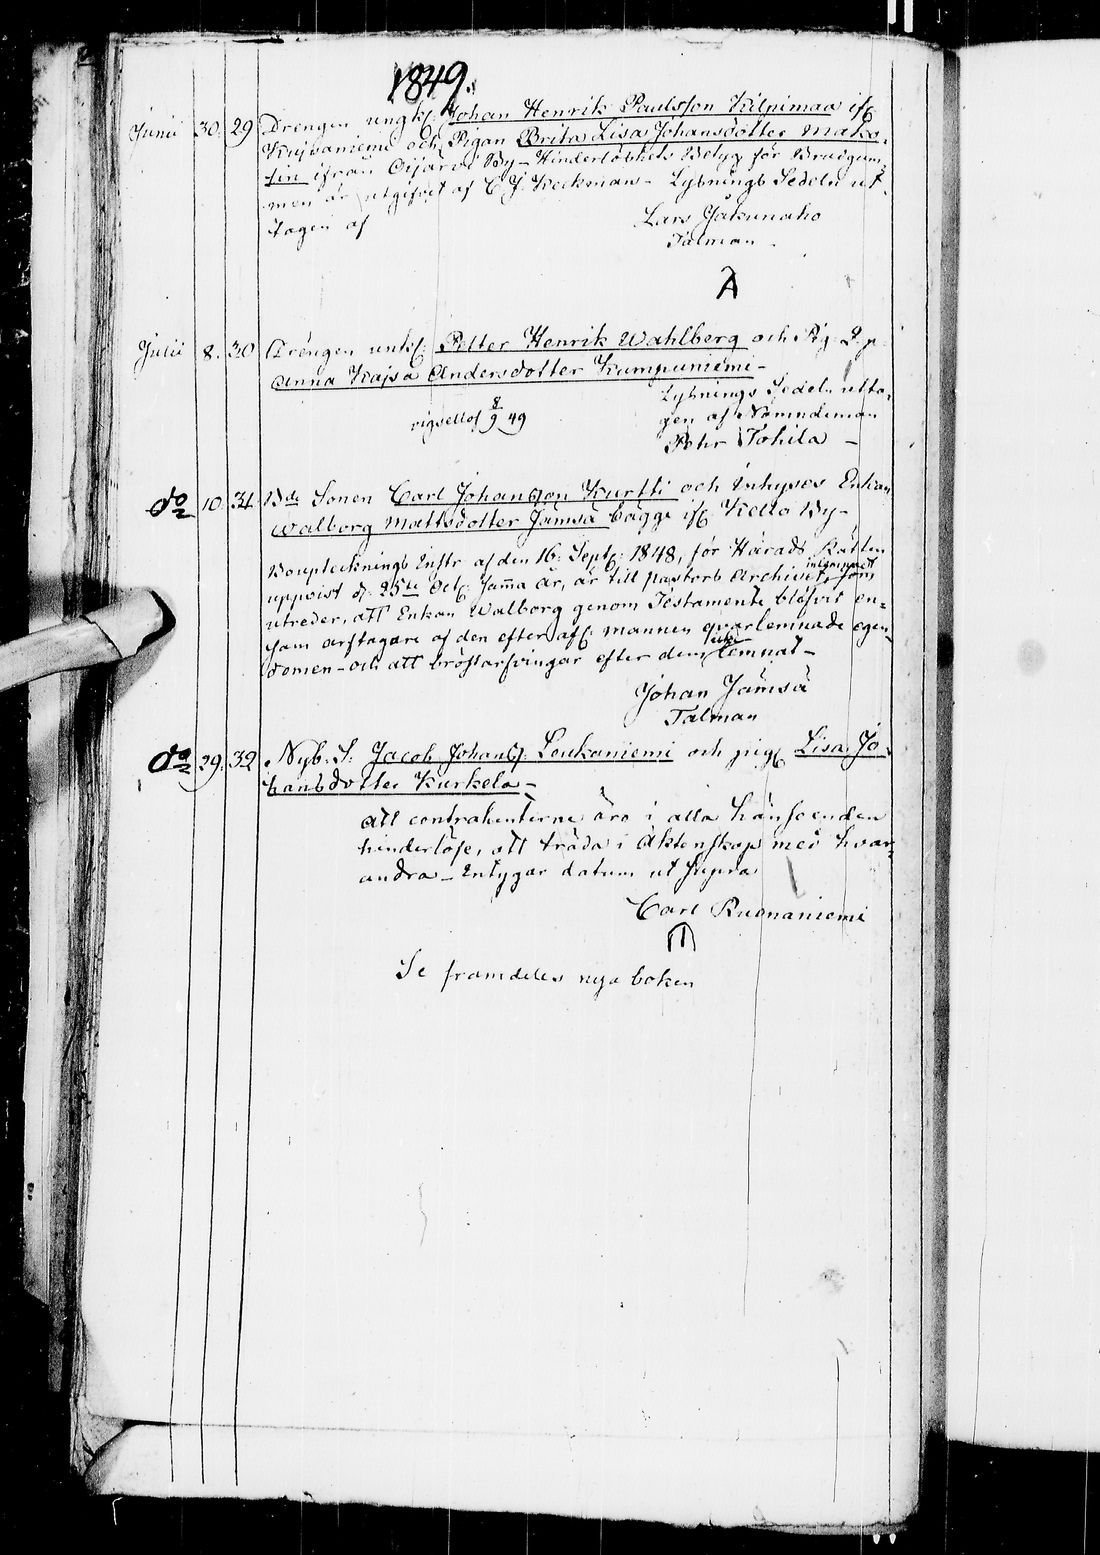 1849.
Junii 30. 29 Drengen ungk: Johan Henrik Paulsson Kilpimaa ifr
Kujvaniemi och Pigan Brita Lisa Johansdotter Mata-
ifrån Oijärvi By – Hinderlöshets Betyg för Brudgum-
men är utgifvet af C. J. Keckman – Lysnings Sedeln ut-
tagen af
Lars Jakunaho
Talman.
Julii 8. 30 Drengen unk: Petter Henrik Wahlberg och Pig:
Anna Kajsa Andersdotter Kumpuniemi –
Lysnings Sedeln utta-
gen af Nämndeman
vigsellof 8/9 49
Pehr Tohila –
do 10. 31. Bde Sonen Carl Johansson Kurtti och Inhyses Enkan
Walborg Mattsdotter Jämsä bägge ifr Kello By –
Boupptecknings Instr af den 16. Sept: 1848, för Härads Rätten
uppvist d. 25te Oct: samma år, är till pastors Archivet inlemnadt, som
utreder, att Enkan Walborg genom Testamente blifvit en-
sam arftagare af den efter afl: mannen qvarlemnade egen-
domen – och att bröstarfvingar efter dem icke lemnat –
Johan Jämsä
Talman
do 29. 32 Nyb. S. Jacob Johanss: Loukaniemi och pig: Lisa Jo-
hansdotter Kurkela –
att contrahenterne äro i alla hänseenden
hinderlöse, att träda i Äktenskap med hvar-
andra – Intygar datum ut supra
Carl Ruonaniemi
Se framdeles nya boken